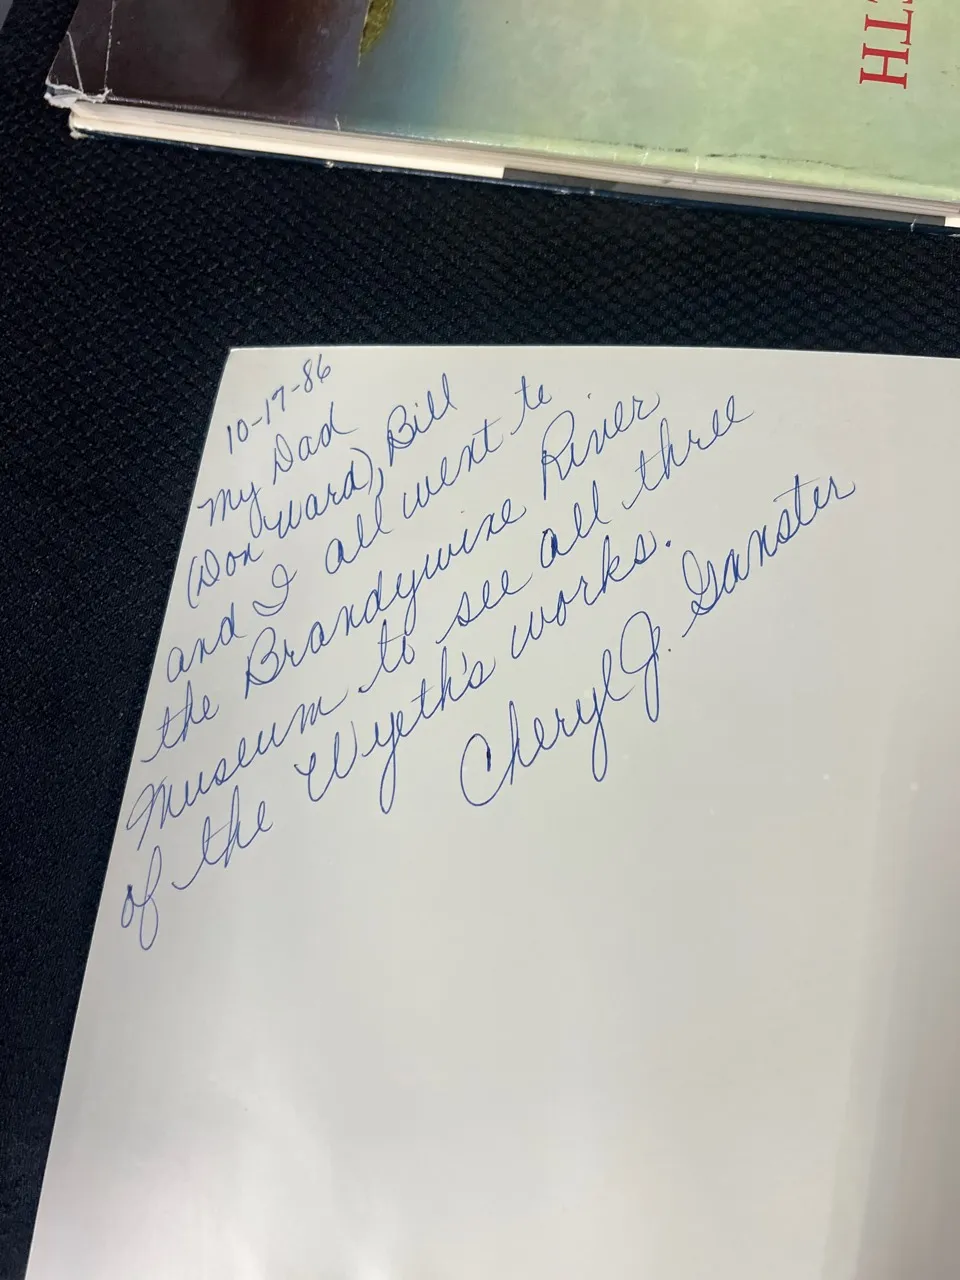 ETH
10-17-86
My Dad
(Don Ward), Bill
and I all went to
the Brandywine River
Museum to see all three
of the Wyeth's works.
Cheryl J. Ganster